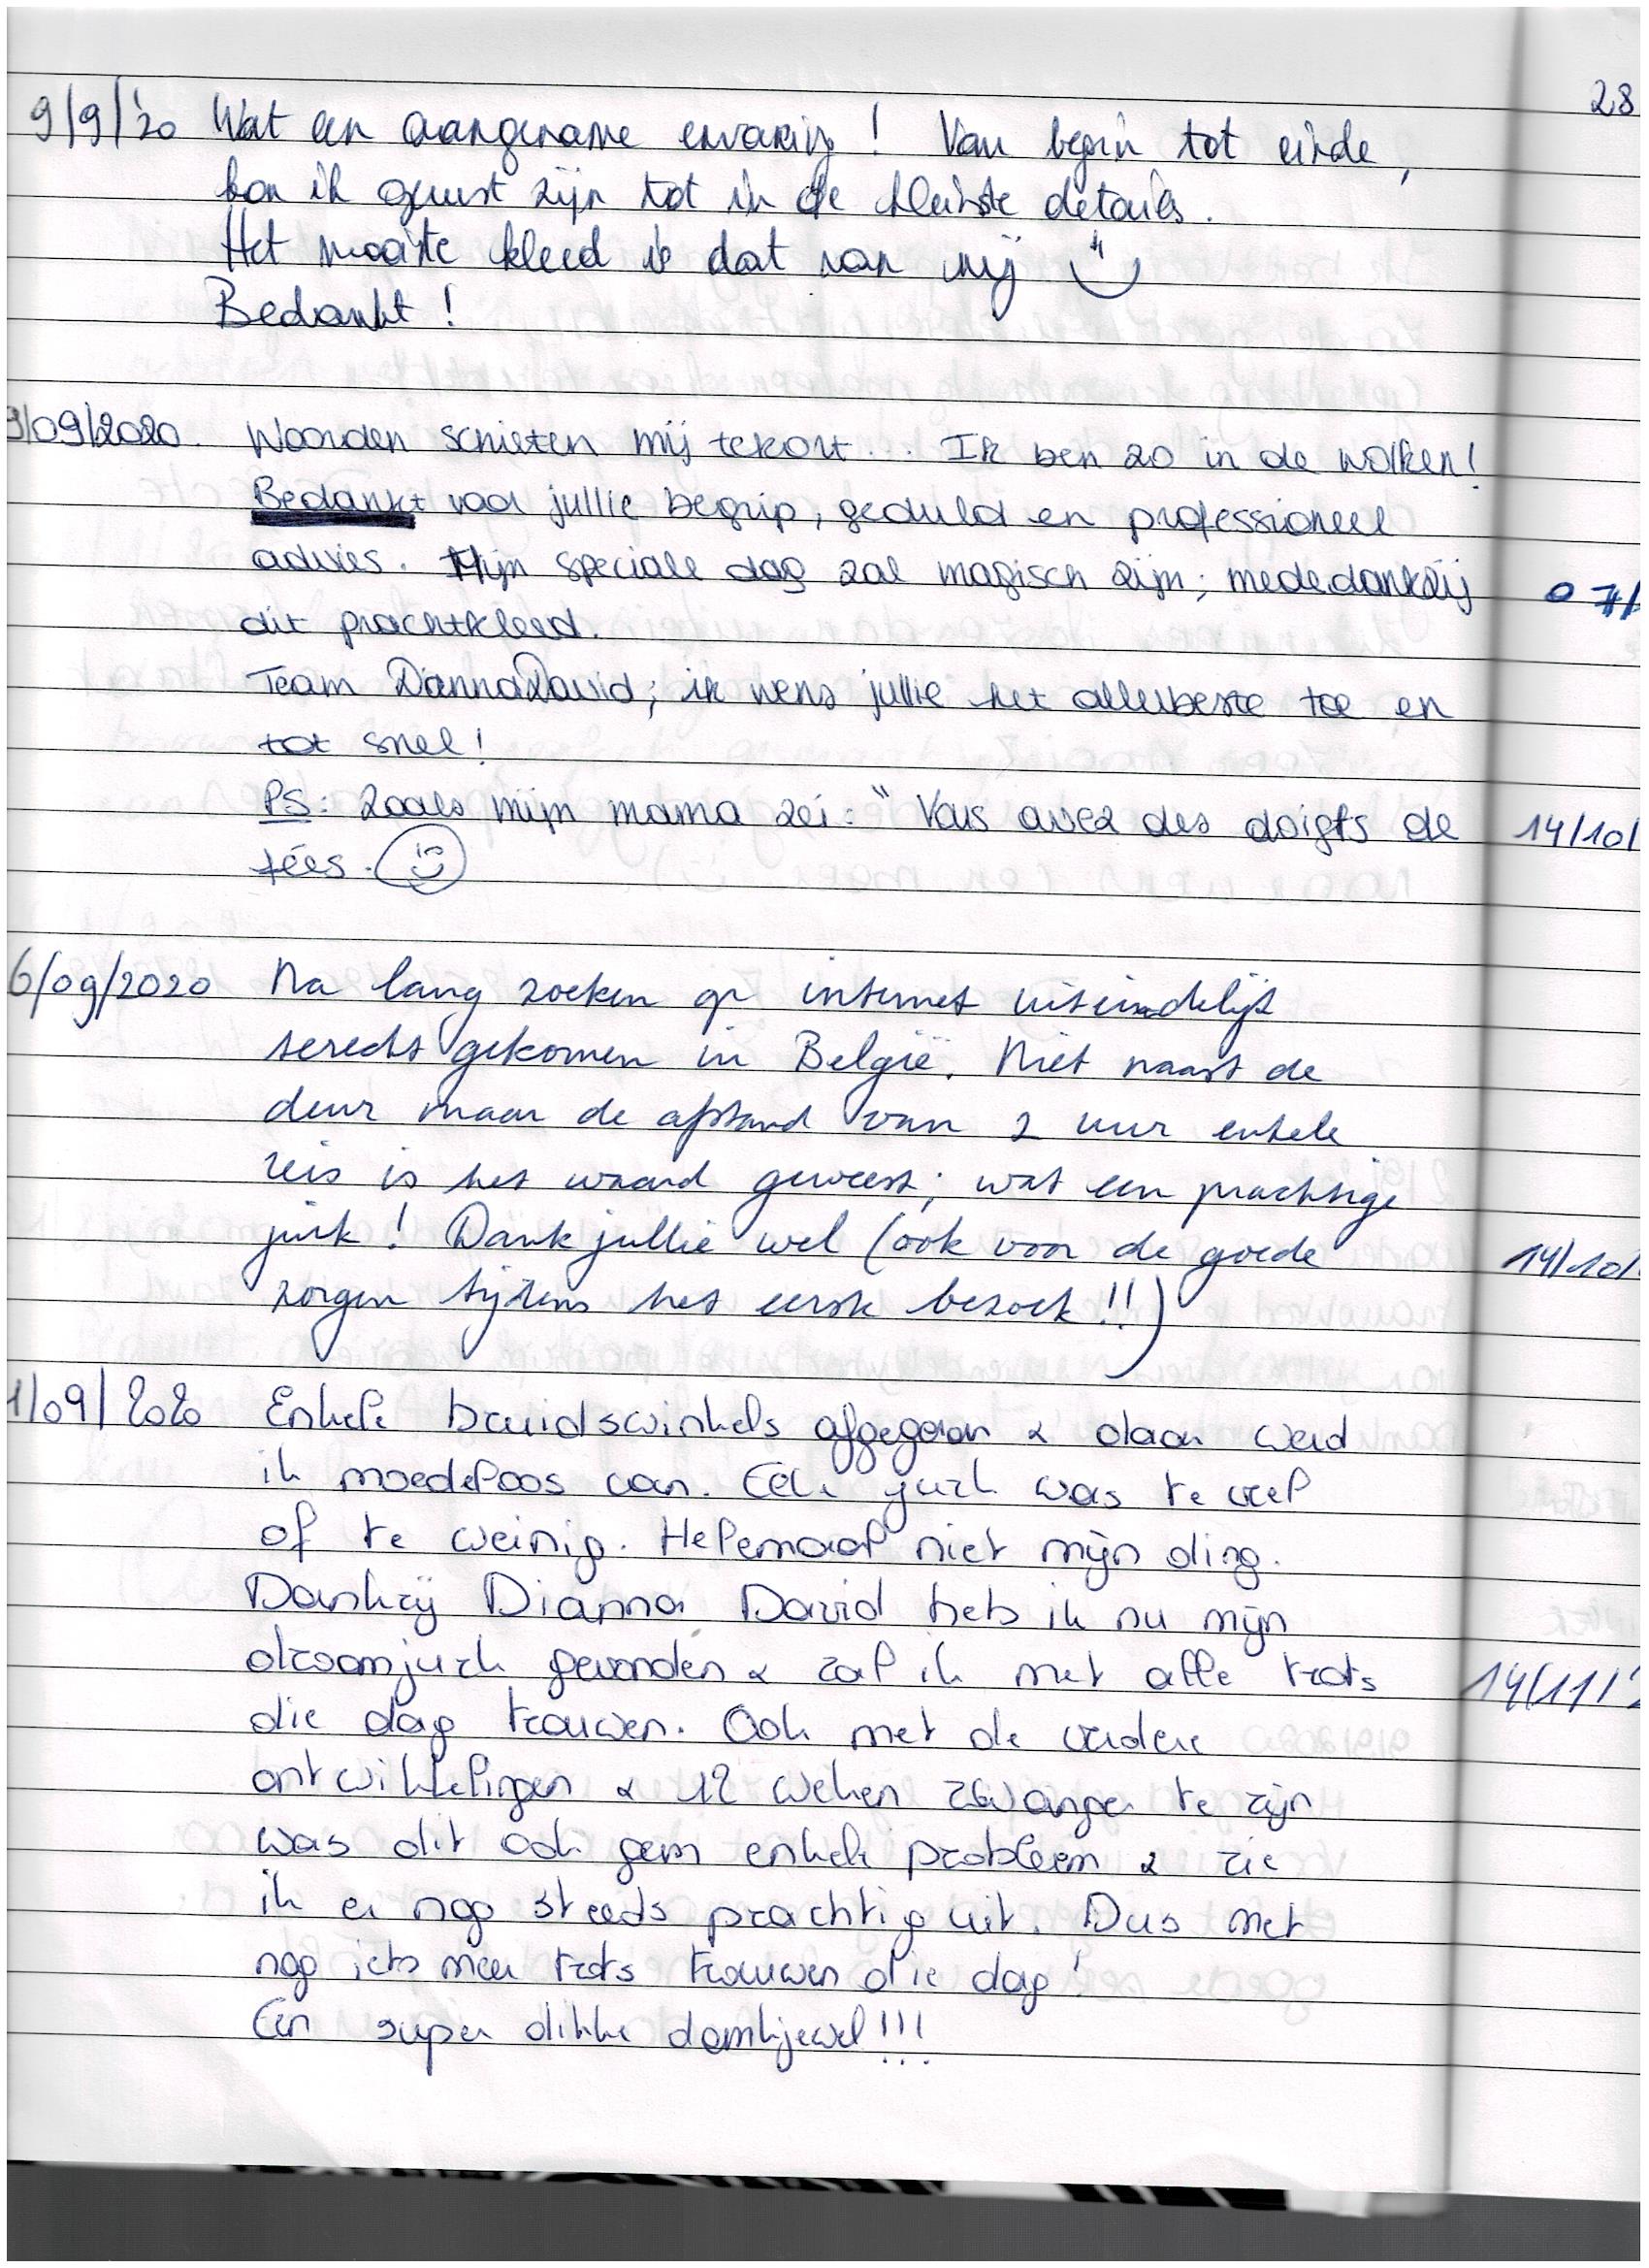 9/9/'20 Wat een aangename ervaring ! Van begin tot einde,
kon ik gerust zijn tot in de kleinste details.
Het mooiste kleed is dat van mij
Bedankt !
9/09/2020. Woorden schieten mij tekort... Ik ben zo in de wolken!
Bedankt voor jullie begrip, geduld en professioneel
advies. Mijn speciale dag zal magisch zijn; mede dankzij
dit prachtkleed.
Team DiannaDavid; ik wens jullie het allerbeste toe en
tot snel!
PS: zoals mijn mama zei: "Vous avez des doigts de
fées.
6/09/2020 Na lang zoeken op internet uiteindelijk
terecht gekomen in België. Niet naast de
deur maar de afstand van 2 uur enkele
reis is het waard geweest; wat een prachtige
jurk! Dank jullie wel (ook voor de goede
zorgen tijdens het eerste bezoek!!)
1/09/2020 Enkele bruidswinkels afgegaan & daar werd
ik moedeloos van. Elke jurk was te veel
of te weinig. Helemaal niet mijn ding.
Dankzij Dianna David heb ik nu mijn
droomjurk gevonden & zal ik met alle trots
die dag trouwen. Ook met de verdere
ontwikkelingen & 12 weken zwanger te zijn
was dit ook geen enkele probleem & zie
ik er nog steeds prachtig uit. Dus met
nog iets meer trots trouwen die dag!
Een super dikke dankjewel!!!
28
07/
14/10/
14/10/
14/11/'2